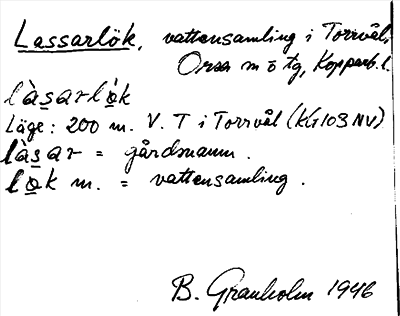 Lassarlök, vattensamling i Torrvål,
Orsa m o tg, Kopparb. l.
làsarlòk
Läge: 200 m. V. T i Torrvål (KG103 NV)
làsar = gårdsnamn.
lòk m. = vattensamling.
B. Granholm 1946